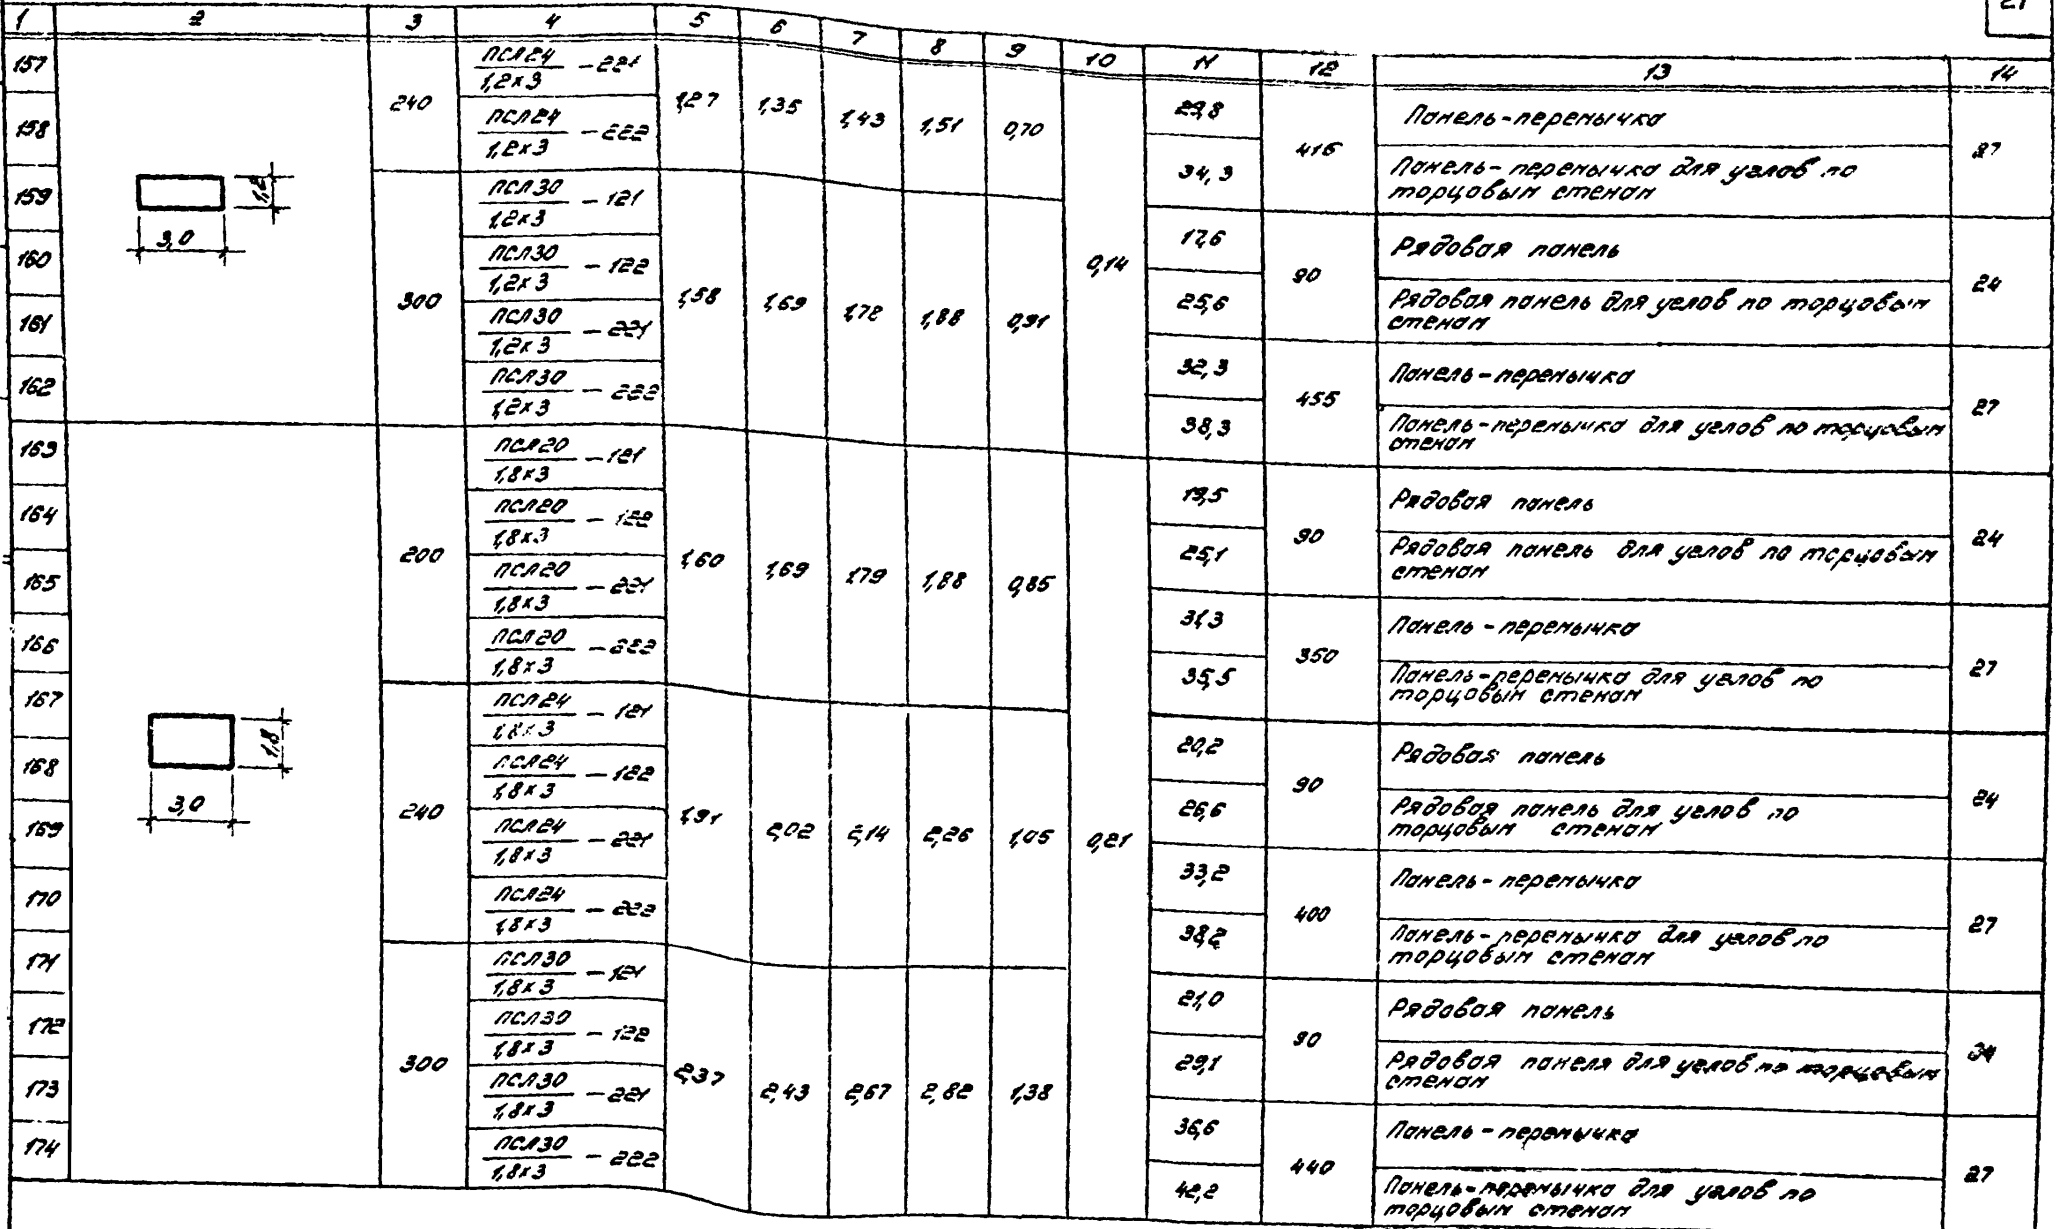 21
1 2 3 4 5 6 7 8 9 10 11 12 13 14
157 240 ПСЛ24/1,2х3 - 221 1,27 1,35 1,43 1,51 0,70 0,14 29,8 416 Панель-перемычка 27
158 ПСЛ24/1,2х3 - 222 34,3 Панель-перемычка для углов по
торцовым стенам
159 300 ПСЛ30/1,2х3 - 121 1,58 1,69 1,78 1,88 0,91 17,6 90 Рядовая панель 24
1,2
3,0
160 ПСЛ30/1,2х3 - 122 25,6 Рядовая панель для углов по торцовым
стенам
161 ПСЛ30/1,2х3 - 221 32,3 455 Панель-перемычка 27
162 ПСЛ30/1,2х3 - 222 38,3 Панель-перемычка для углов по торцовым
стенам
163 200 ПСЛ20/1,8х3 - 121 1,60 1,69 1,79 1,88 0,85 0,21 19,5 90 Рядовая панель 24
164 ПСЛ20/1,8х3 - 122 25,1 Рядовая панель для углов по торцовым
стенам
165 ПСЛ20/1,8х3 - 221 31,3 350 Панель-перемычка 27
166 ПСЛ20/1,8х3 - 222 35,5 Панель-перемычка для углов по
торцовым стенам
167 240 ПСЛ24/1,8х3 - 121 1,91 2,02 2,14 2,26 1,05 20,2 90 Рядовая панель 24
1,8
3,0
168 ПСЛ24/1,8х3 - 122 26,6 Рядовая панель для углов по
торцовым стенам
169 ПСЛ24/1,8х3 - 221 33,2 400 Панель-перемычка 27
170 ПСЛ24/1,8х3 - 222 38,2 Панель-перемычка для углов по
торцовым стенам
171 300 ПСЛ30/1,8х3 - 121 2,37 2,43 2,67 2,82 1,38 21,0 90 Рядовая панель 24
172 ПСЛ30/1,8х3 - 122 29,1 Рядовая панеля для углов по торцовым
стенам
173 ПСЛ30/1,8х3 - 221 36,6 440 Панель-перемычка 27
174 ПСЛ30/1,8х3 - 222 42,2 Панель-перемычка для углов по
торцовым стенам